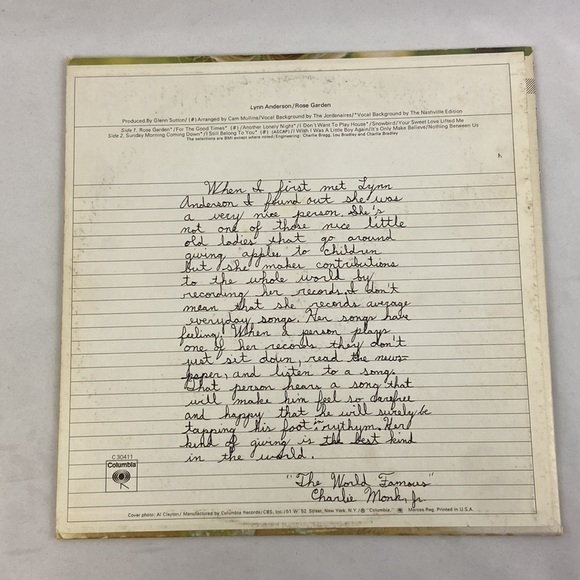 Lynn Anderson/Rose Garden
Produced By Glenn Sutton/(#) Arranged by Cam Mullins/Vocal Background by The Jordanaires/*Vocal Background by The Nashville Edition
Side 1. Rose Garden*/For The Good Times* (#)/Another Lonely Night*/I Don't Want To Play House*/Snowbird/Your Sweet Love Lifted Me
Side 2. Sunday Morning Coming Down*/I Still Belong To You* (#) (ASCAP)/I Wish I Was A Little Boy Again/It's Only Make Believe/Nothing Between Us
The selections are BMI except where noted./Engineering: Charlie Bragg, Lou Bradley and Charlie Bradley
When I first met Lynn
Anderson I found out she was
a very nice person. She's
not one of those nice little
old ladies that go around
giving apples to children
but she makes contributions
to the whole world by
recording her records. I don't
mean that she records average
everyday songs. Her songs have
feeling. When a person plays
one of her records they don't
just sit down, read the news-
paper, and listen to a song.
That person hears a song that
will make him feel so carefree
and happy that he will surely be
tapping his foot in rythym. Her
kind of giving is the best kind
in the world.
"The World Famous"
Charlie Monk, Jr.
C 30411
Columbia
Cover photo: Al Clayton/ Manufactured by Columbia Records/CBS, Inc./51 W. 52 Street, New York, N.Y./® "Columbia," Marcas Reg. Printed in U.S.A.